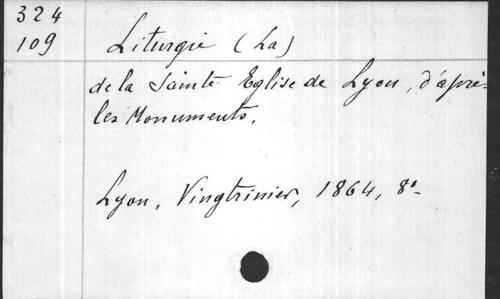 324
109
Liturgie (La)
de la Sainte Eglise de Lyon, d'après
les Monuments.
Lyon, Vingtrinier, 1864, 8°